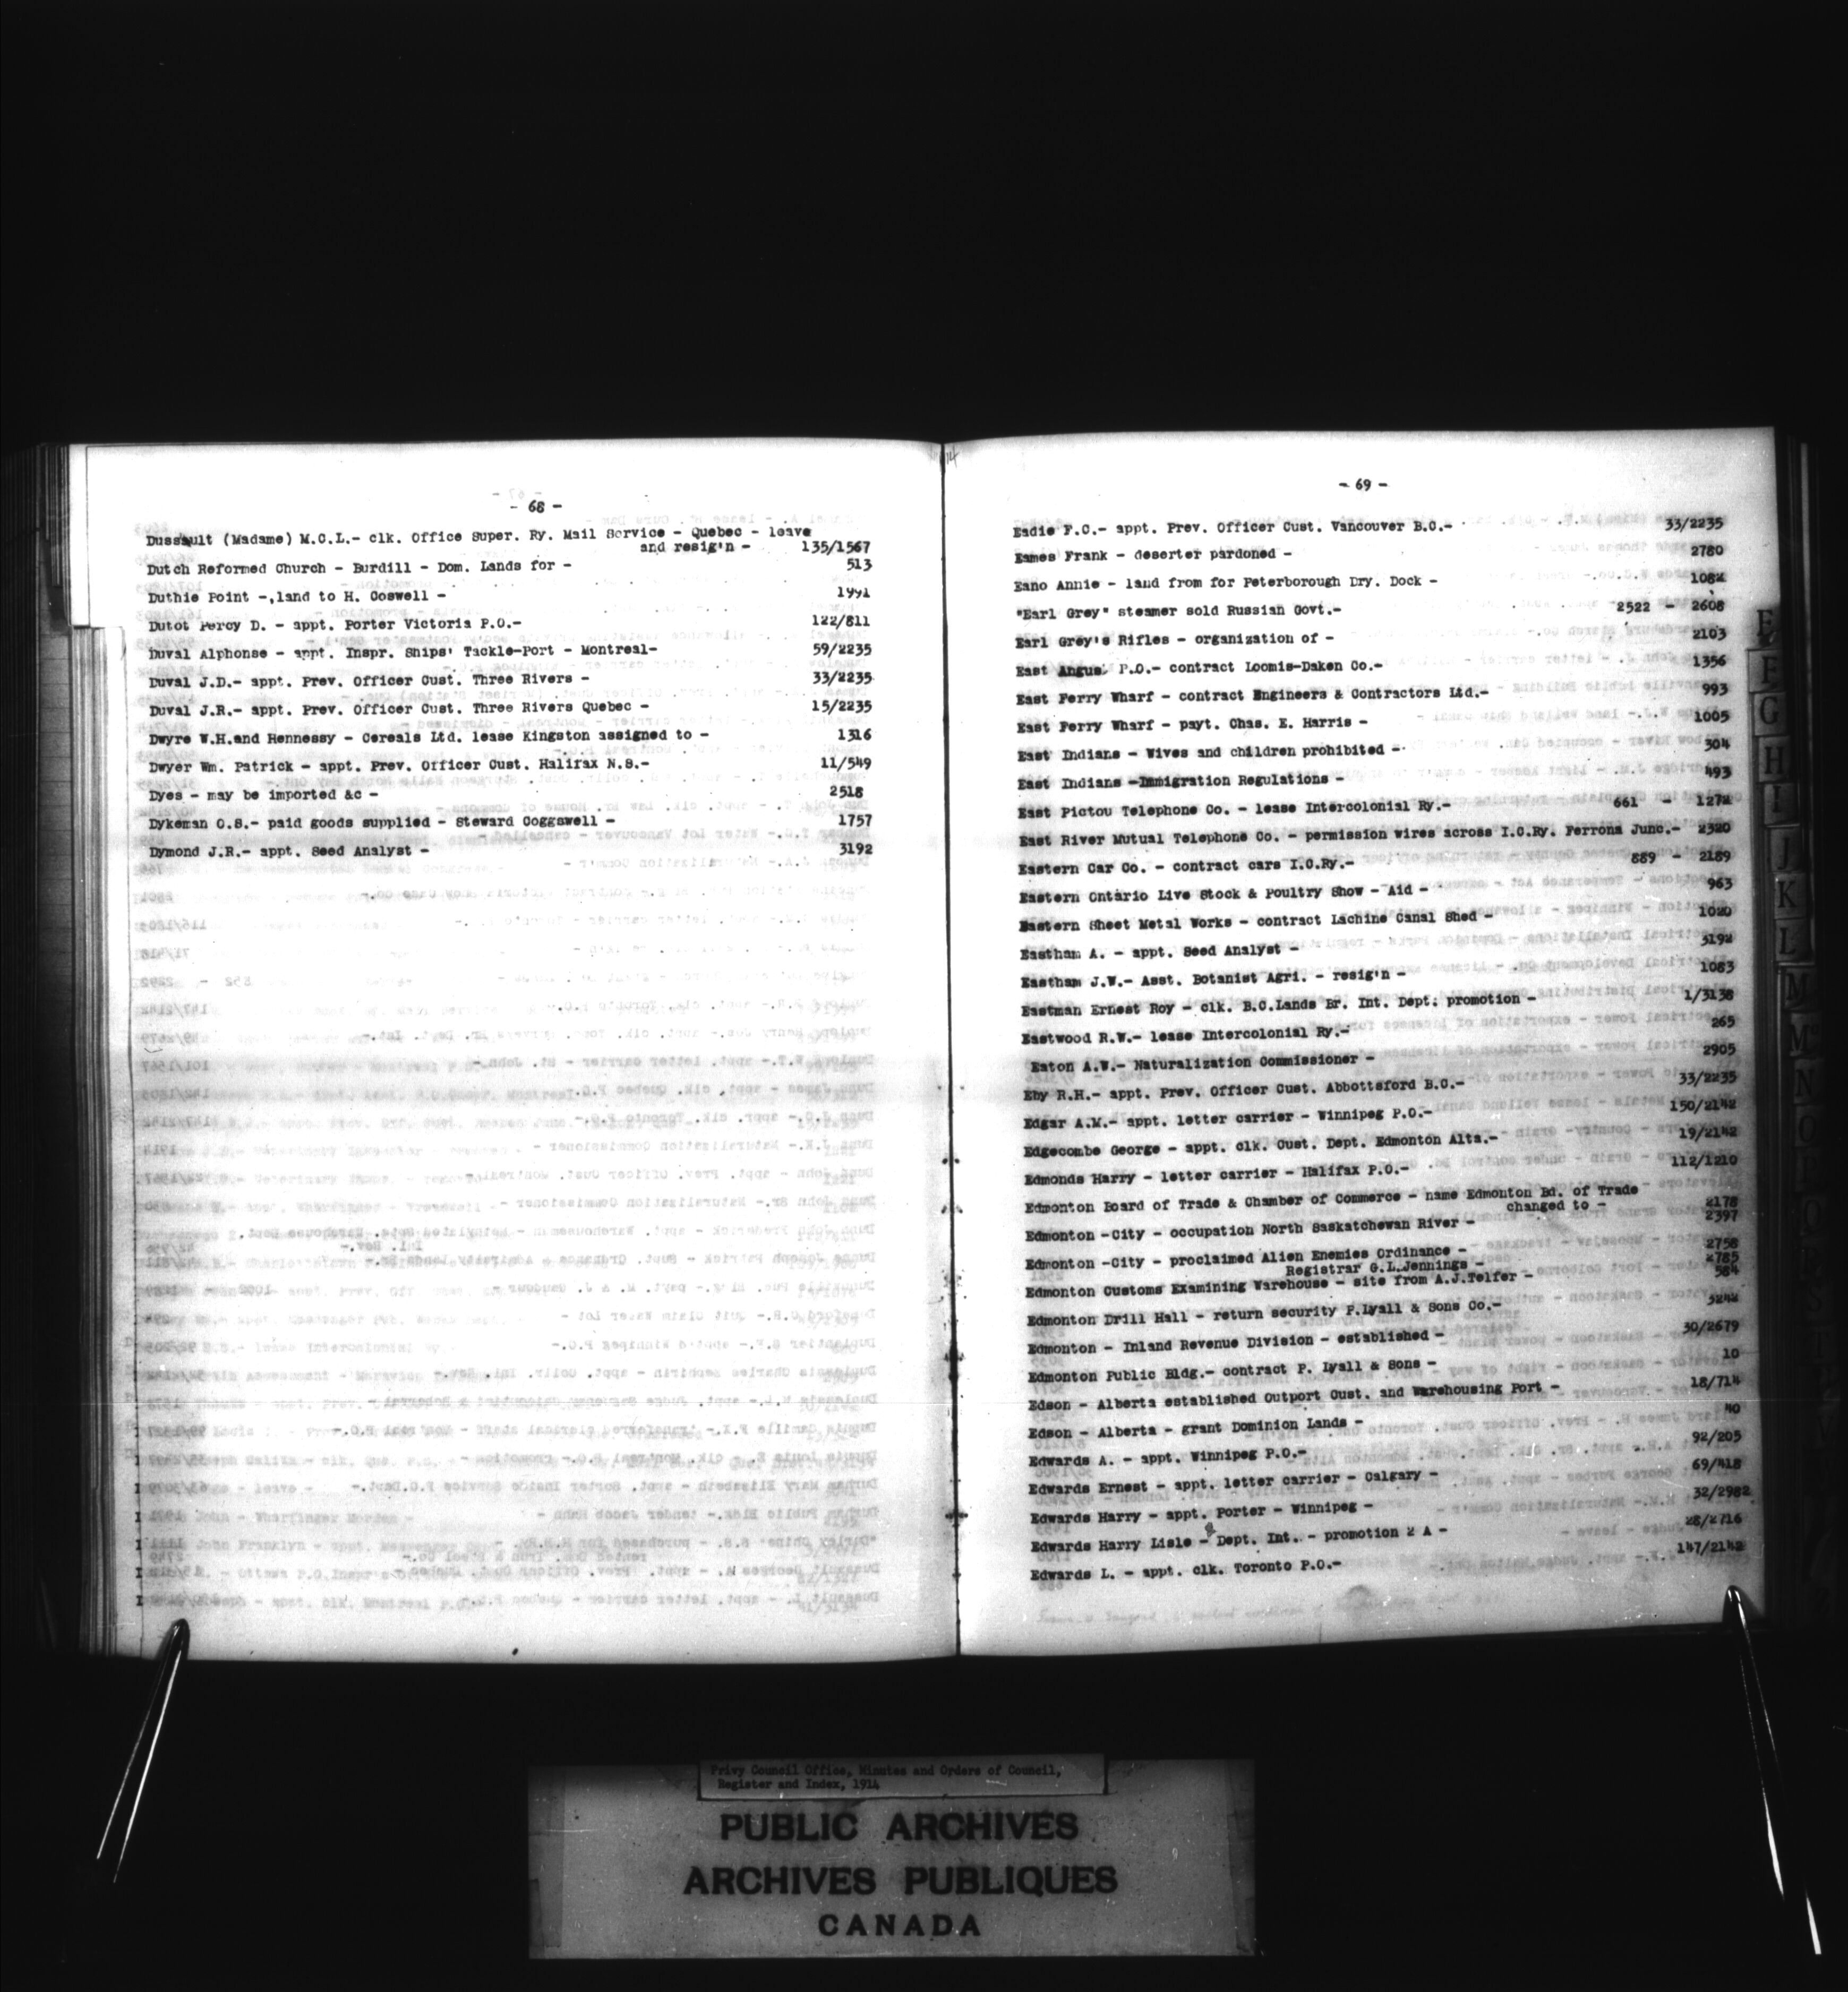 - 68 -
Dussault (Madame) M.C.L.- clk. Office Super. Ry. Mail Service - Quebec - leave
and resig'n - 135/1567
Dutch Reformed Church - Burdill - Dom. Lands for - 513
Duthie Point -,land to H. Coswell - 1991
Dutot Percy D. - appt. Porter Victoria P.O.- 122/811
Duval Alphonse - appt. Inspr. Ships' Tackle-Port - Montreal- 59/2235
Duval J.D.- appt. Prev. Officer Cust. Three Rivers - 33/2235
Duval J.R.- appt. Prev. Officer Cust. Three Rivers Quebec - 15/2235
Dwyre W.H.and Hennessy - Cereals Ltd. lease Kingston assigned to - 1316
Dwyer Wm. Patrick - appt. Prev. Officer Cust. Halifax N.S.- 11/549
Dyes - may be imported &c - 2518
Dykeman C.S.- paid goods supplied - Steward Coggswell - 1757
Dymond J.R.- appt. Seed Analyst - 3192
- 69 -
Eadie F.C.- appt. Prev. Officer Cust. Vancouver B.C.- 33/2235
Eames Frank - deserter pardoned - 2780
Eano Annie - land from for Peterborough Dry. Dock - 1082
"Earl Grey" steamer sold Russian Govt.- 2522 - 2608
Earl Grey's Rifles - organization of - 2103
East Angus P.O.- contract Loomis-Daken Co.- 1356
East Ferry Wharf - contract Engineers & Contractors Ltd.- 993
East Ferry Wharf - payt. Chas. E. Harris - 1005
East Indians - Wives and children prohibited - 304
East Indians -Immigration Regulations - 493
East Pictou Telephone Co. - lease Intercolonial Ry.- 661 - 1272
East River Mutual Telephone Co. - permission wires across I.C.Ry. Ferrona Junc.- 2320
Eastern Car Co. - contract cars I.C.Ry.- 889 - 2189
Eastern Ontario Live Stock & Poultry Show - Aid - 963
Eastern Sheet Metal Works - contract Lachine Canal Shed - 1020
Eastham A. - appt. Seed Analyst - 3192
Eastham J.W.- Asst. Botanist Agri. - resig'n - 1083
Eastman Ernest Roy - clk. B.C.Lands Br. Int. Dept. promotion - 1/3138
Eastwood R.W.- lease Intercolonial Ry.- 265
Eaton A.W.- Naturalization Commissioner - 2905
Eby R.H.- appt. Prev. Officer Cust. Abbottsford B.C.- 33/2235
Edgar A.M.- appt. letter carrier - Winnipeg P.O.- 150/2142
Edgecombe George - appt. clk. Cust. Dept. Edmonton Alta.- 19/2142
Edmonds Harry - letter carrier - Halifax P.O.- 112/1210
Edmonton Board of Trade & Chamber of Commerce - name Edmonton Bd. of Trade
changed to - 2178
Edmonton -City - occupation North Saskatchewan River - 2397
Edmonton -City - proclaimed Alien Enemies Ordinance - 2758
Registrar G.L.Jennings - 2785
Edmonton Customs Examining Warehouse - site from A.J.Telfer - 584
Edmonton Drill Hall - return security P.Lyall & Sons Co.- 3242
Edmonton - Inland Revenue Division - established - 30/2679
Edmonton Public Bldg.- contract P. Lyall & Sons - 10
Edson - Alberta established Outport Cust. and Warehousing Port - 18/714
Edson - Alberta - grant Dominion Lands - 40
Edwards A. - appt. Winnipeg P.O.- 92/205
Edwards Ernest - appt. letter carrier - Calgary - 69/418
Edwards Harry - appt. Porter - Winnipeg - 32/2982
Edwards Harry Lisle - Dept. Int. - promotion 2 A - 28/2716
Edwards L. - appt. clk. Toronto P.O.- 147/2142
E
F
G
H
I
J
K
L
M
Mc
N
O
Privy Council Office, Minutes and Orders of Council,
Register and Index, 1914
PUBLIC ARCHIVES
ARCHIVES PUBLIQUES
CANADA